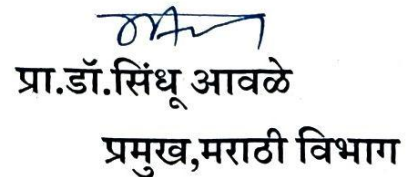 प्रा.डॉ.सिंधू आवळे
प्रमुख,मराठी विभाग